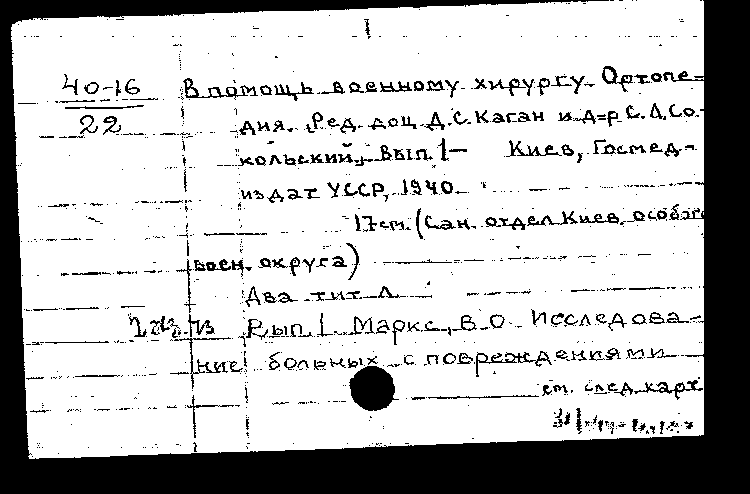 1
40-16 В помощь военному хирургу. Ортопе=
22 дия. Ред. доц Д.С. Каган и д=р С.Л. Со-
кольский. Вып. 1— Киев, Госмед-
издат УССР, 1940.
17 см. (Сан. отдел Киев. особого
воен. округа)
Два тит л.
Вып. 1. Маркс, В.О. Исследова-
ние больных с повреждениями
см. след. карт